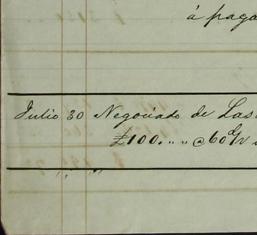 á paga
Julio 30 Negociado de Las
£100. „ „ @ 60 d/v